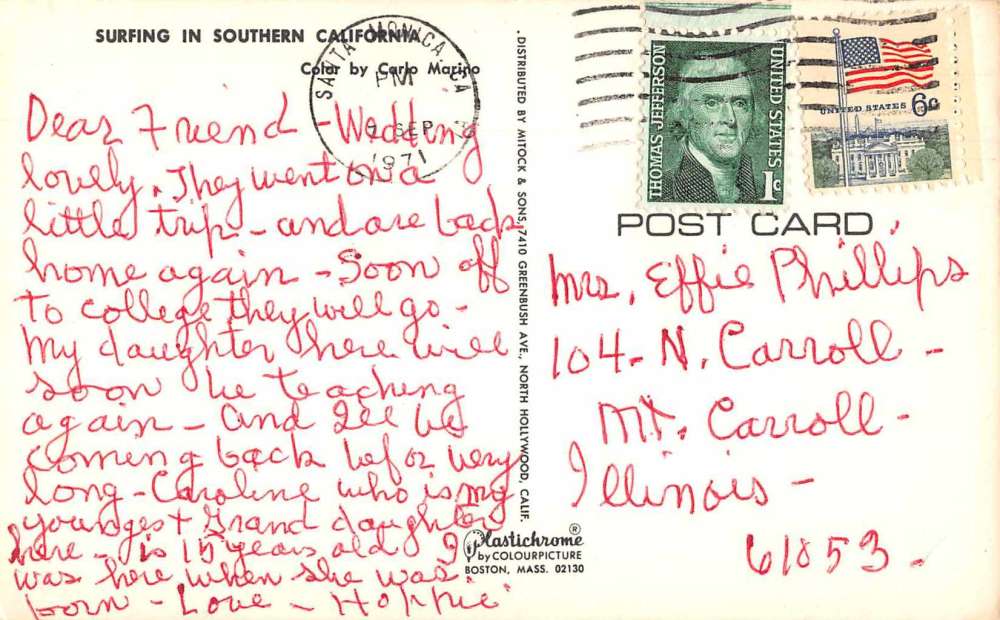 SURFING IN SOUTHERN CALIFORNIA
Color by Carlo Marino
SANTA MONICA, CA
PM
7 SEP
1971
Dear Friend - Wedding
lovely. They went on a
little trip - and are back
home again - Soon off
to college they will go -
My daughter here will
soon be teaching
again - And Ill be
coming back befor very
long - Caroline who is my
youngest Grand daughter
here - is 15 years old I
was here when she was
born - Love - Hoppie
DISTRIBUTED BY MITOCK & SONS, 7410 GREENBUSH AVE., NORTH HOLLYWOOD, CALIF.
THOMAS JEFFERSON
UNITED STATES
1c
UNITED STATES 6c
POST CARD
Mrs. Effie Phillips
104 - N. Carroll -
Mt. Carroll -
Illinois -
61853.
Plastichrome ®
by COLOURPICTURE
BOSTON, MASS. 02130